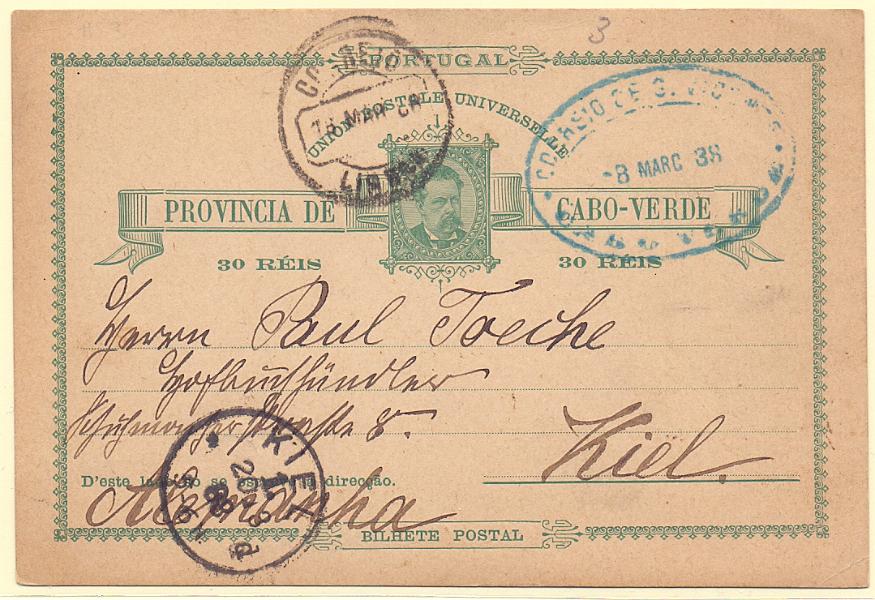 3
PORTUGAL
UNION POSTALE UNIVERSELLE
CORREIO
18 MAR
LISBOA
CORREIO DE S. VICENTE
-8 MARC 38
CABO VERDE
PROVINCIA DE CABO-VERDE
30 RÉIS 30 RÉIS
Herrn Paul Toeche
Hofbuchhändler
Schuhmacherstraße 8.
Kiel.
D'este lado só se escreve a direcção.
Allemanha
KIEL
BILHETE POSTAL